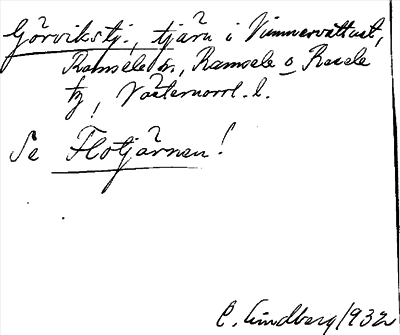 Görvikstj., tjärn i Vimmervattnet,
Ramsele sn., Ramsele o Resele
tg, Västernorrl. l.
Se Flotjärnen!
C. Lindberg 1932